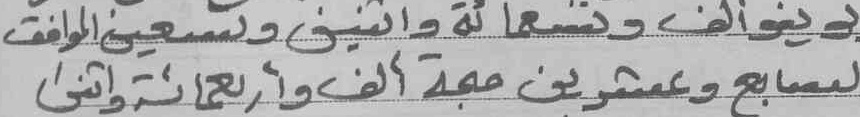 يونيو ألف وتسعمائة واثنين وتسعين الموافق
لسابع وعشرين حجة ألف وأربعمائة واثنى